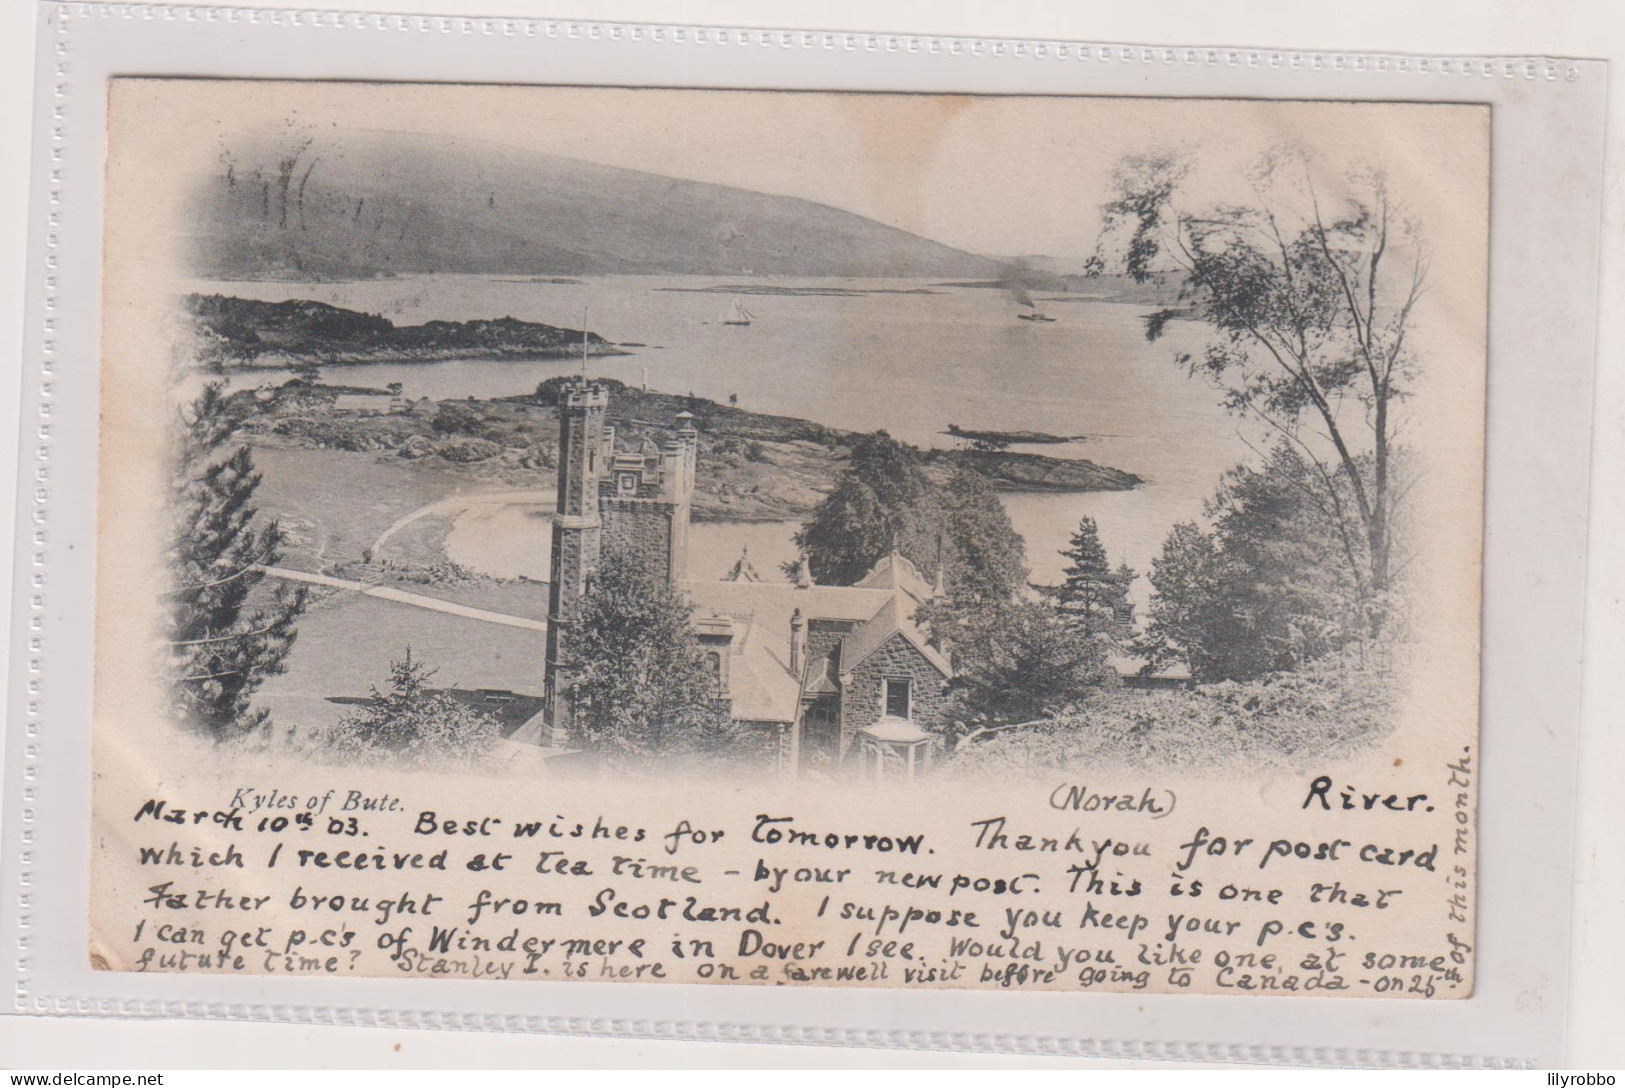 Kyles of Bute.
(Norah) River.
March 10th 03. Best wishes for tomorrow. Thank you for post card
which I received at tea time - by our new post. This is one that
Father brought from Scotland. I suppose you keep your p.c's.
I can get p.c's of Windermere in Dover I see. Would you like one, at some
future time? Stanley I. is here on a farewell visit before going to Canada - on 25th
of this month.
lilyrobbo